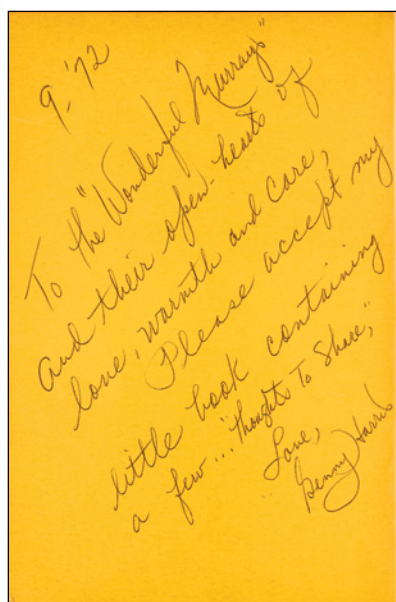 9-'72
To the "Wonderful Murrays"
and their open-hearts of
love, warmth and care,
Please accept my
little book containing
a few... "Thoughts To Share,"
Love,
Benny Harris